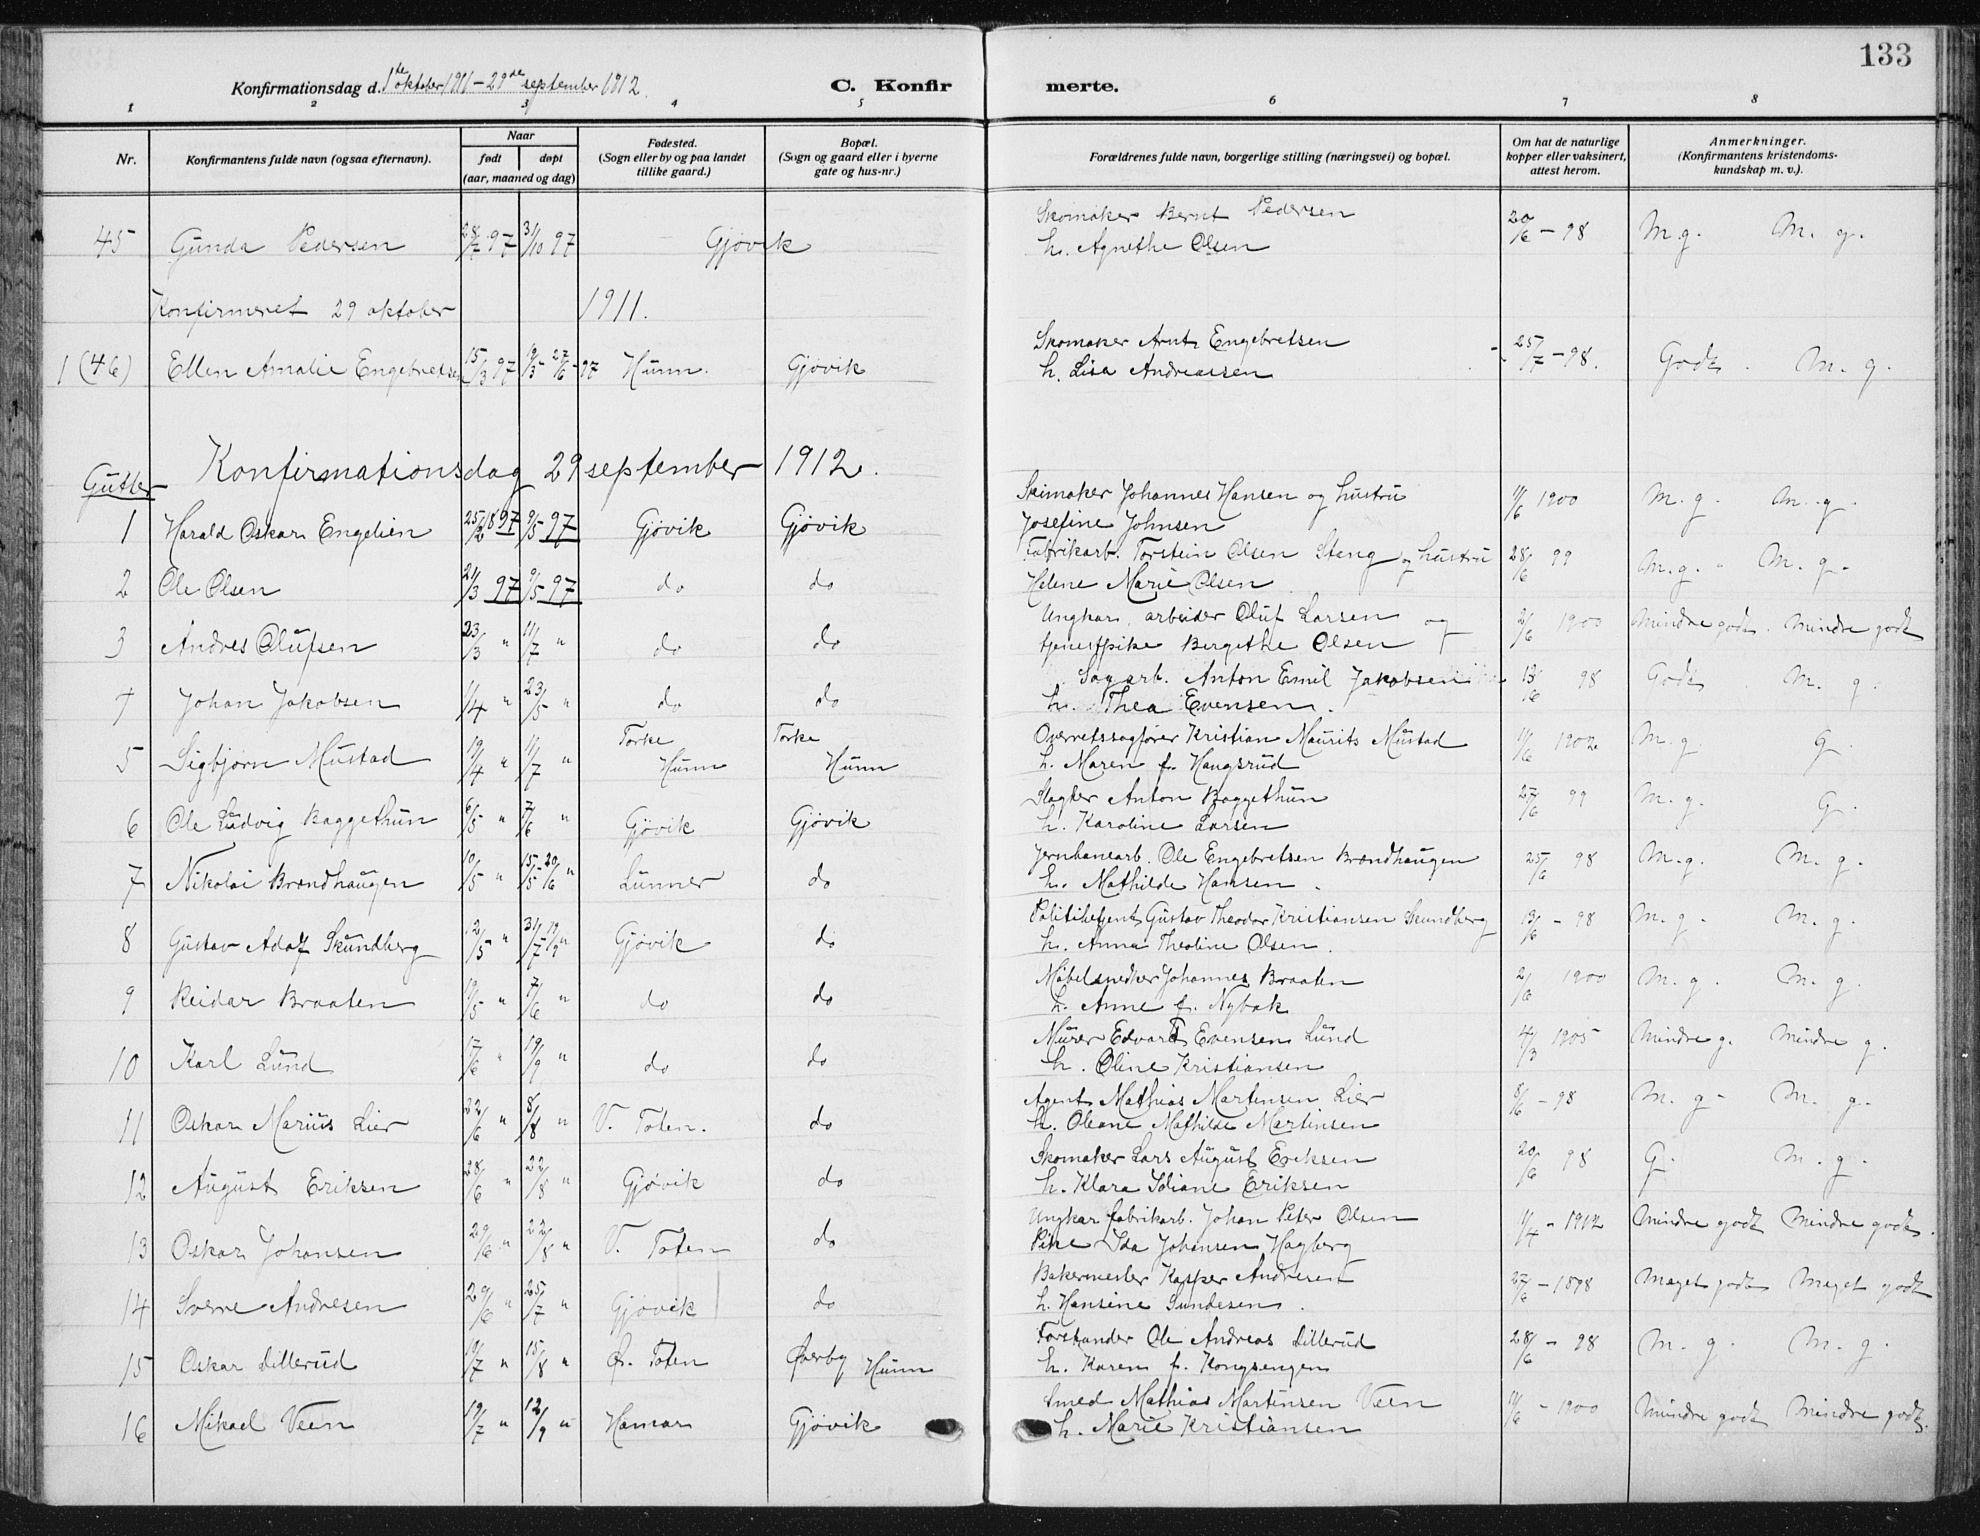 133
Konfirmationsdag d. 1ste oktober 1911 – 29de september 1912. C. Konfir merte.
1 2 3 4 5 6 7 8
Nr. Konfirmantens fulde navn (ogsaa efternavn). Naar født døpt (aar, maaned og dag) Fødested. (Sogn eller by og paa landet tillike gaard.) Bopæl. (Sogn og gaard eller i byerne gate og hus-nr.) Forældrenes fulde navn, borgerlige stilling (næringsvei) og bopæl. Om hat de naturlige kopper eller vaksinert, attest herom. Anmerkninger. (Konfirmantens kristendoms-kundskap m. v.).
Skomaker Bernt Pedersen
45 Gunda Pedersen 28/7 97 31/10 97 Gjøvik h. Agnethe Olsen 20/6 – 98 M. g. M. g.
Konfirmeret 29 oktober 1911.
Skomaker Arnt Engebretsen
1 (46) Ellen Amalie Engebretsen 15/3 97 19/5 – 27/6 – 97 Hunn. Gjøvik h. Lisa Andreassen 25/7 – 98. Godt. M. g.
Konfirmationsdag 29 september 1912.
Gutter
Skimaker Johannes Hansen og hustru
1 Harald Oskar Engelien 25/2 1897 9/5 97 Gjøvik Gjøvik Josefine Johnsen 11/6 1900 M. g. M. g.
Fabrikarb. Torstein Olsen Steng og hustru
2 Ole Olsen 21/3 97 9/5 97 do do Helene Marie Olsen 28/6 99 M. g. M. g.
Ungkar, arbeider Oluf Larsen og
3 Andres Olufsen 23/3 " 11/7 " do do tjenestpike Bergethe Olsen 2/6 1900 Mindre godt. Mindre godt
Sagarb. Anton Emil Jakobsen
4 Johan Jakobsen 1/4 " 23/5 " do do h. Thea Evensen. 13/6 98 Godt. M. g.
Overretssagfører Kristian Maurits Mustad
5 Sigbjørn Mustad 19/4 " 11/7 " Torke Hunn Torke Hunn h. Maren f. Haugsrud 11/6 1902 M. g. G.
Slagter Anton Baggethun
6 Ole Ludvig Baggethun 6/5 " 7/6 " Gjøvik Gjøvik h. Karoline Larsen 27/6 99 M. g. G.
Jernbanearb. Ole Engebretsen Brændhaugen
7 Nikolai Brændhaugen 10/5 " 15/5 – 20/6 " Lunner do h. Mathilde Hansen. 25/6 98 M. g. M. g.
Politibetjent Gustav Theodor Kristiansen Skundberg
8 Gustav Adolf Skundberg 12/5 " 31/7 19/9 " Gjøvik do h. Anna Theoline Olsen. 13/6 – 98 M. g. M. g.
Møbelsnedker Johannes Braaten
9 Reidar Braaten 19/5 " 7/6 " do do h. Anne f. Nybak 2/6 1900 M. g. M. g.
Murer Edvard Evensen Lund
10 Karl Lund 17/6 " 19/9 " do do h. Oline Kristiansen 4/3 1905 Mindre g. Mindre g.
Agent Mathias Martinsen Lier
11 Oskar Marius Lier 22/6 " 8/8 " V. Toten. do h. Oleane Mathilde Martinsen 8/6 – 98 M. g. M. g.
Skomaker Lars August Eriksen
12 August Eriksen 28/6 " 22/8 " Gjøvik do h. Klara Idiane Eriksen 20/6 98 G. M. g.
Ungkar fabrikarb. Johan Peter Olsen
13 Oskar Johansen 29/6 " 22/8 " V. Toten do Pike Ida Johansen Hagberg 11/4 – 1912 Mindre godt Mindre godt.
Bakermester Kasper Andresen
14 Sverre Andresen 29/6 " 25/7 " Gjøvik do h. Hansine Sundesen. 27/6 – 1898 Meget godt Meget godt
Forstander Ole Andreas Lillerud
15 Oskar Lillerud 10/7 " 15/8 " Ø. Toten Øverby Hunn h. Karen f. Kongsengen 28/6 – 98 M. g. M. g.
Smed Mathias Martinsen Veen
16 Mikael Veen 19/7 " 12/9 " Hamar Gjøvik h. Marie Kristiansen 11/6 – 1900 Mindre godt Mindre godt.